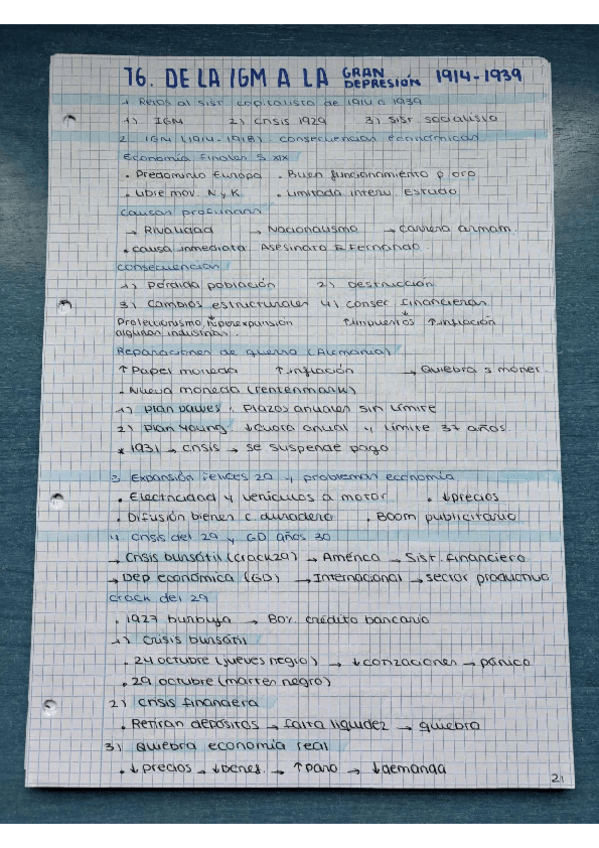 T6. DE LA IGM A LA GRAN DEPRESIÓN 1914-1939
1. Retos al sist. capitalista de 1914 a 1939
1) IGM 2) crisis 1929 3) sist socialista
2. IGM (1914-1918). consecuencias económicas
Economía finales s. XIX
. Predominio Europa . Buen funcionamiento p. oro
. Libre mov. N y K . Limitada interv. estado
Causas profundas
→ Rivalidad → Nacionalismo → carrera armam.
. causa inmediata: Asesinato F. Fernando.
Consecuencias
1) Pérdida población 2) Destrucción
3) Cambios estructurales 4) consec. financieras
Proteccionismo, hiperexpansión ↑impuestos ↑inflación
algunas industrias.
Reparaciones de guerra (Alemania)
↑ Papel moneda ↑inflación → Quiebra s. moner.
. Nueva moneda (rentenmark)
1) Plan Dawes: Plazos anuales sin límite
2) Plan Young: ↓cuota anual y límite 37 años.
* 1931 → crisis → se suspende pago
3. Expansión felices 20 y problemas economía
. Electricidad y vehículos a motor . ↓precios
. Difusión bienes c. duradero . Boom publicitario
4. Crisis del 29 y GD años 30
→ Crisis bursátil (crack29) → América → Sist. financiero
→ Dep económica (GD) → Internacional → sector productivo
Crack del 29
. 1927 burbuja → 80% crédito bancario
1) Crisis bursátil
. 24 octubre (jueves negro) → ↓cotizaciones → pánico
. 29 octubre (martes negro)
2) Crisis financiera
. Retiran depósitos → falta liquidez → quiebra
3) Quiebra economía real
. ↓precios → ↓benef. → ↑paro → ↓demanda
21